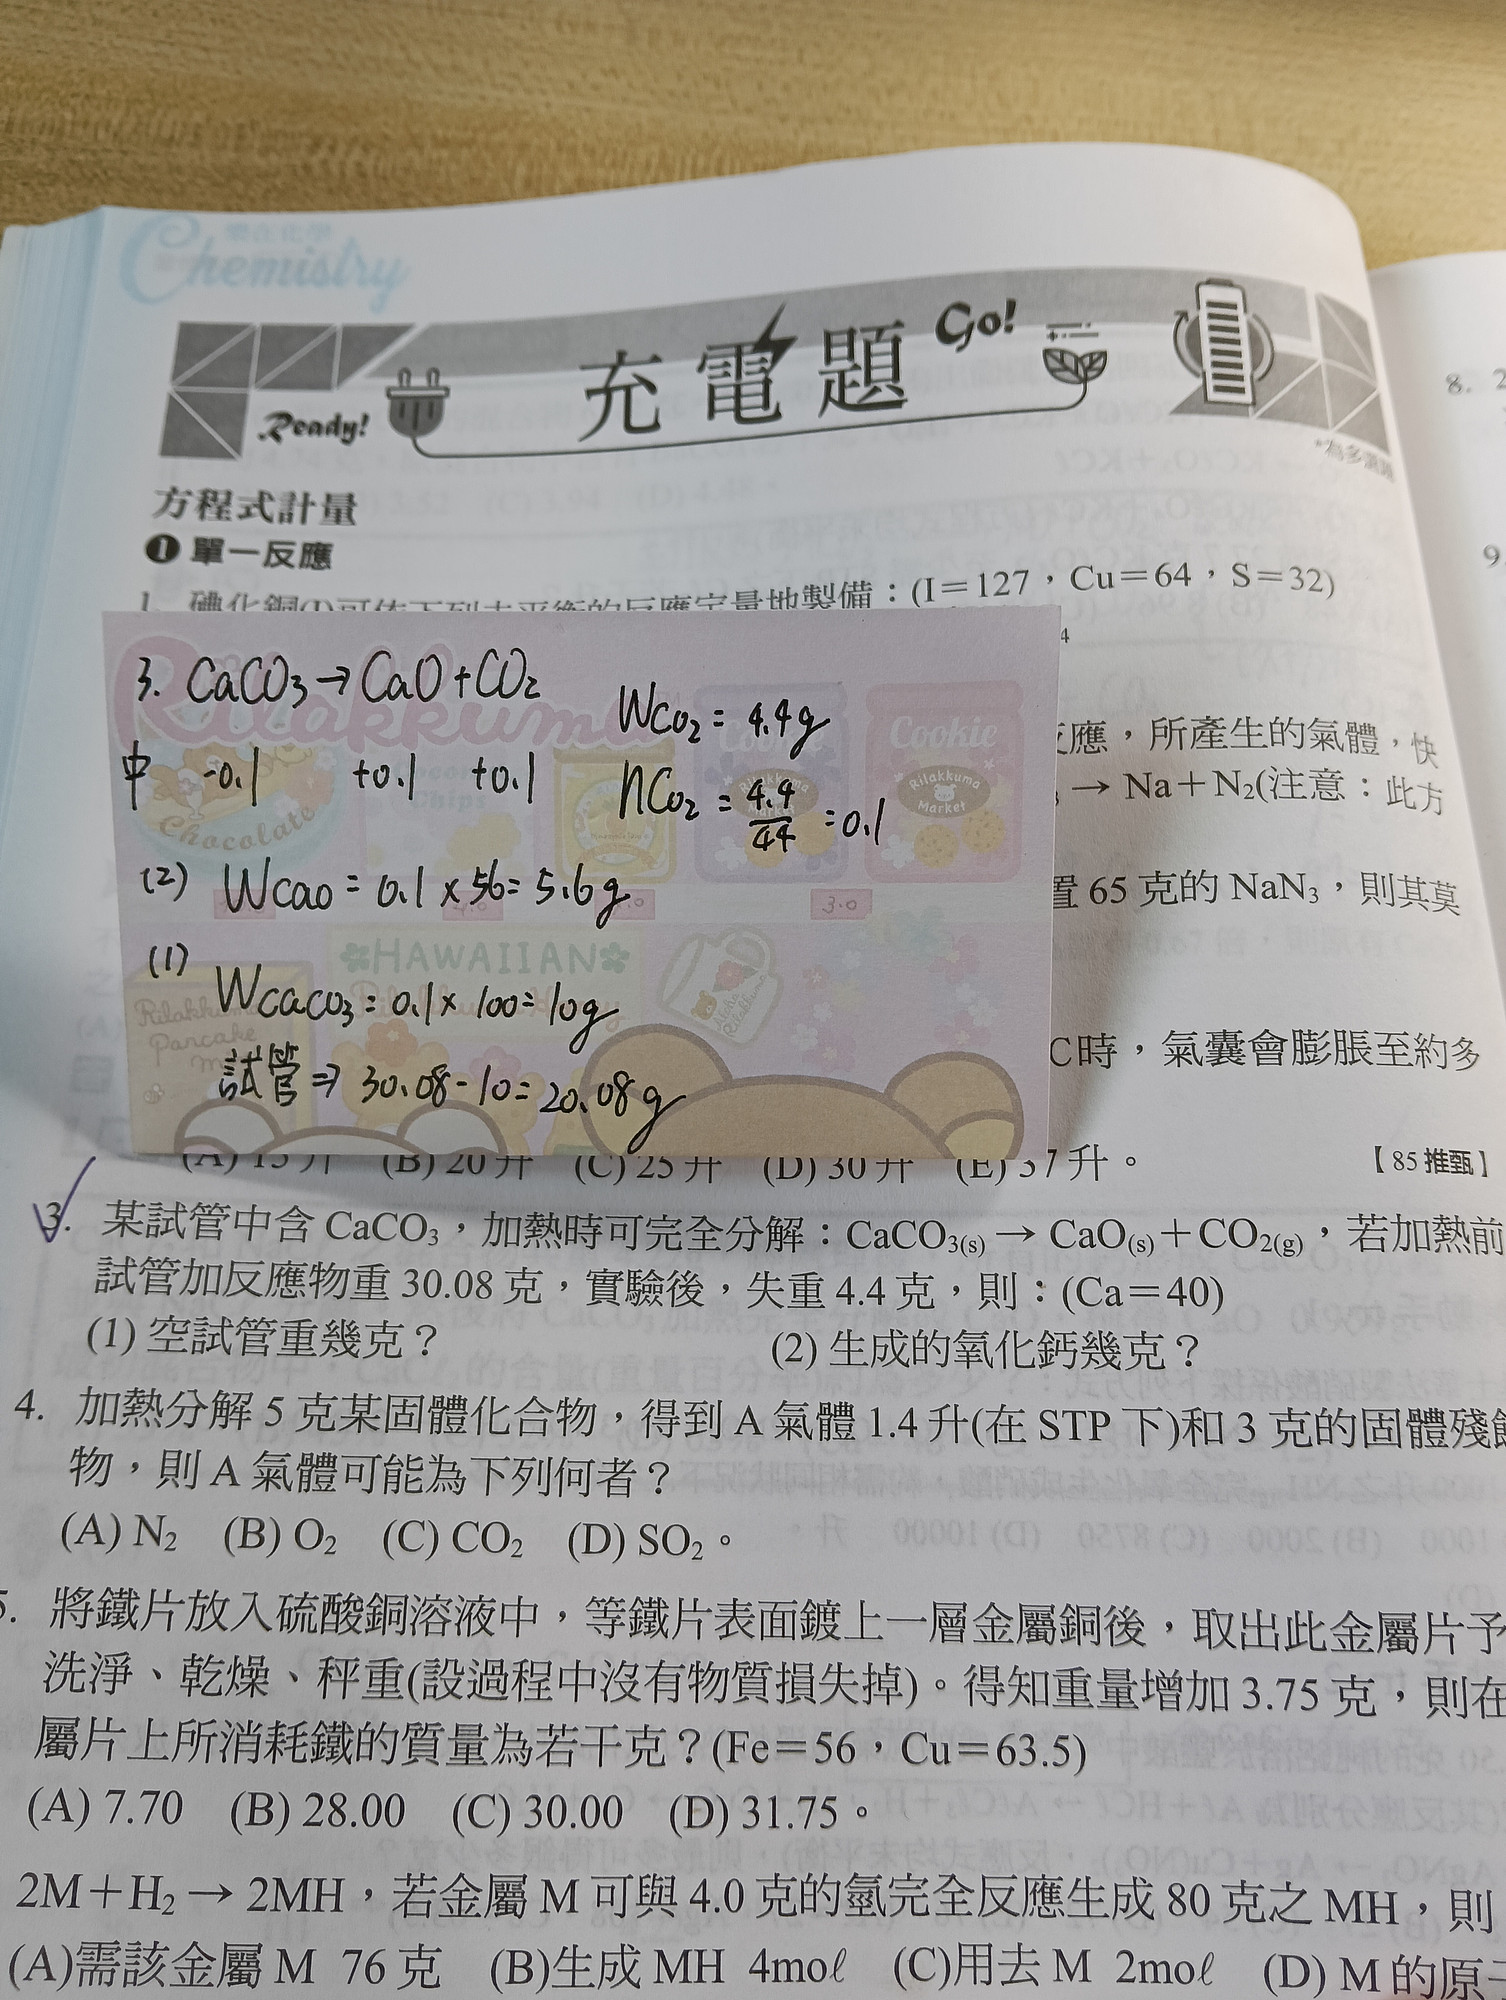 樂在化學
Chemistry
Ready!
充電題
Go!
*為多選題
方程式計量
❶ 單一反應
1. 碘化銅(I)可依下列未平衡的反應定量地製備：(I＝127，Cu＝64，S＝32)
4
3. CaCO₃→CaO+CO₂
中 -0.1 +0.1 +0.1
WCO₂ = 4.4g
nCO₂ = 4.4/44 = 0.1
(2) WCaO = 0.1×56=5.6g
(1)
WCaCO₃=0.1×100=10g
試管⇒30.08-10=20.08g
Rilakkuma
Cookie
Rilakkuma
Market
Chocolate
Chips
3.0
HAWAIIAN
Rilakkuma
Pancake
Aloha
Rilakkuma
反應，所產生的氣體，快
₃ → Na＋N₂(注意：此方
置 65 克的 NaN₃，則其莫
C時，氣囊會膨脹至約多
(A) 15 升 (B) 20 升 (C) 25 升 (D) 30 升 (E) 37 升。 【85 推甄】
3. 某試管中含 CaCO₃，加熱時可完全分解：CaCO₃(s) → CaO(s)＋CO₂(g)，若加熱前
試管加反應物重 30.08 克，實驗後，失重 4.4 克，則：(Ca＝40)
(1) 空試管重幾克？ (2) 生成的氧化鈣幾克？
4. 加熱分解 5 克某固體化合物，得到 A 氣體 1.4 升(在 STP 下)和 3 克的固體殘餘
物，則 A 氣體可能為下列何者？
(A) N₂ (B) O₂ (C) CO₂ (D) SO₂。
5. 將鐵片放入硫酸銅溶液中，等鐵片表面鍍上一層金屬銅後，取出此金屬片予
洗淨、乾燥、秤重(設過程中沒有物質損失掉)。得知重量增加 3.75 克，則在
屬片上所消耗鐵的質量為若干克？(Fe＝56，Cu＝63.5)
(A) 7.70 (B) 28.00 (C) 30.00 (D) 31.75。
2M＋H₂ → 2MH，若金屬 M 可與 4.0 克的氫完全反應生成 80 克之 MH，則
(A)需該金屬 M 76 克 (B)生成 MH 4moℓ (C)用去 M 2moℓ (D) M 的原子
8. 2
9.